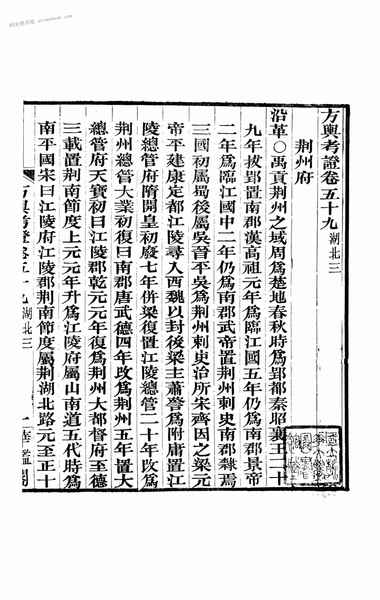 方輿考證卷五十九湖北三
荆州府
沿革○禹貢荆州之域周爲楚地春秋時爲郢都秦昭襄王二十
九年拔郢置南郡漢高祖元年爲臨江國五年仍爲南郡景帝
二年爲臨江國中二年仍爲南郡武帝置荆州刺史南郡隸焉
三國初屬蜀後屬吳晉平吳爲荆州刺史治所宋齊因之梁元
帝平建康定都江陵尋入西魏以封後梁主蕭詧爲附庸置江
陵總管府隋開皇初廢七年併梁復置江陵總管二十年改爲
荆州總管大業初復曰南郡唐武德四年改爲荆州五年置大
總管府天寶初曰江陵郡乾元元年復爲荆州大都督府至德
三載置荆南節度上元元年升爲江陵府屬山南道五代時爲
南平國宋曰江陵府江陵郡荆南節度屬荆湖北路元至正十
方輿考證卷五十九湖北三
一